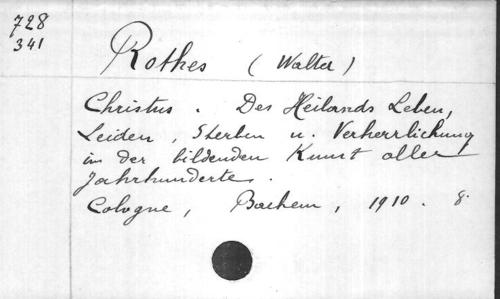 728
341
Rothes (Walter)
Christus. Des Heilands Leben,
Leiden, Sterben u. Verherrlichung
in der bildenden Kunst aller
Jahrhunderte.
Cologne, Bachem, 1910. 8.